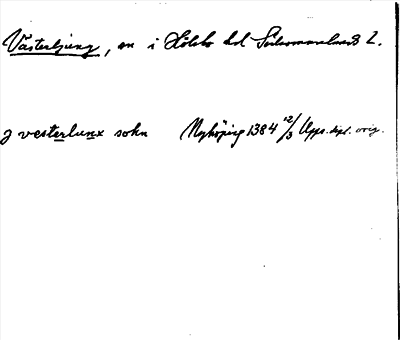 Västerljung, sn i Hölebo hd Södermanlands L.
J vesterlunx sokn Nyköping 1384 12/3 Upps. dipl. orig.